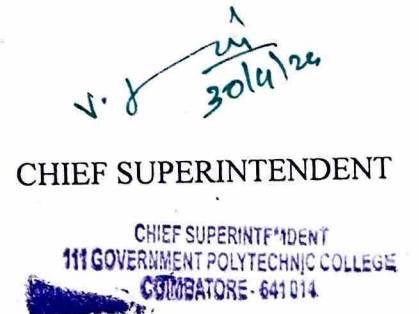 30/4/24
CHIEF SUPERINTENDENT
CHIEF SUPERINTENDENT
111 GOVERNMENT POLYTECHNIC COLLEGE
COIMBATORE - 641 014